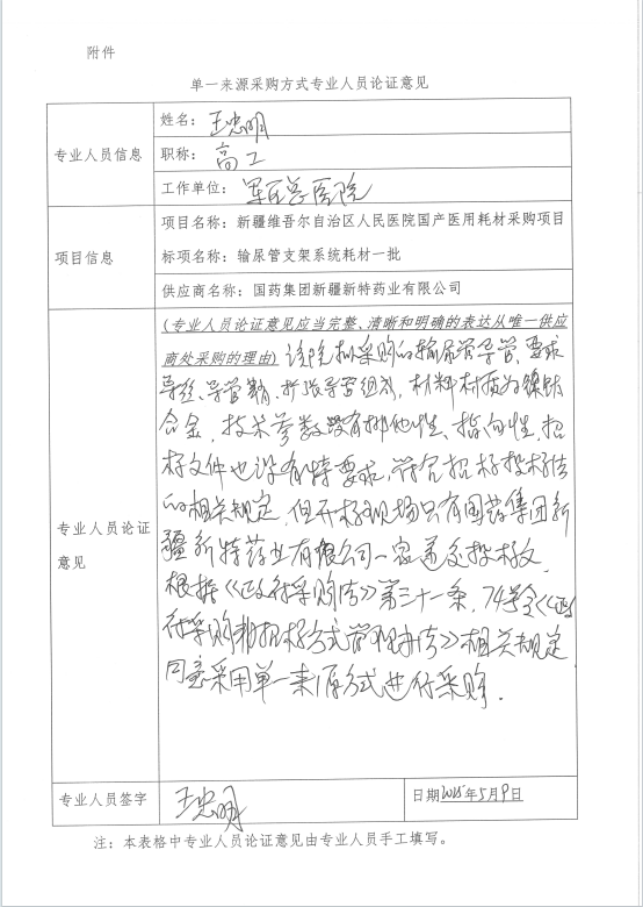 附件
单一来源采购方式专业人员论证意见
专业人员信息
姓名：王忠明
职称：高工
工作单位：军区总医院
项目信息
项目名称：新疆维吾尔自治区人民医院国产医用耗材采购项目
标项名称：输尿管支架系统耗材一批
供应商名称：国药集团新疆新特药业有限公司
专业人员论证
意见
(专业人员论证意见应当完整、清晰和明确的表达从唯一供应
商处采购的理由)该院拟采购的输尿管导管，要求
导丝、导管鞘、扩张导管组成，材料材质为镍钛
合金，技术参数没有排他性、指向性，招
标文件也没有特要求，符合招标投标法
的相关规定，但开标现场只有国药集团新
疆新特药业有限公司一家递交投标文，
根据《政府采购法》第三十一条，74号令《政
府采购非招标方式管理办法》相关规定
同意采用单一来源方式进行采购．
专业人员签字
王忠明
日期2025年5月9日
注：本表格中专业人员论证意见由专业人员手工填写。